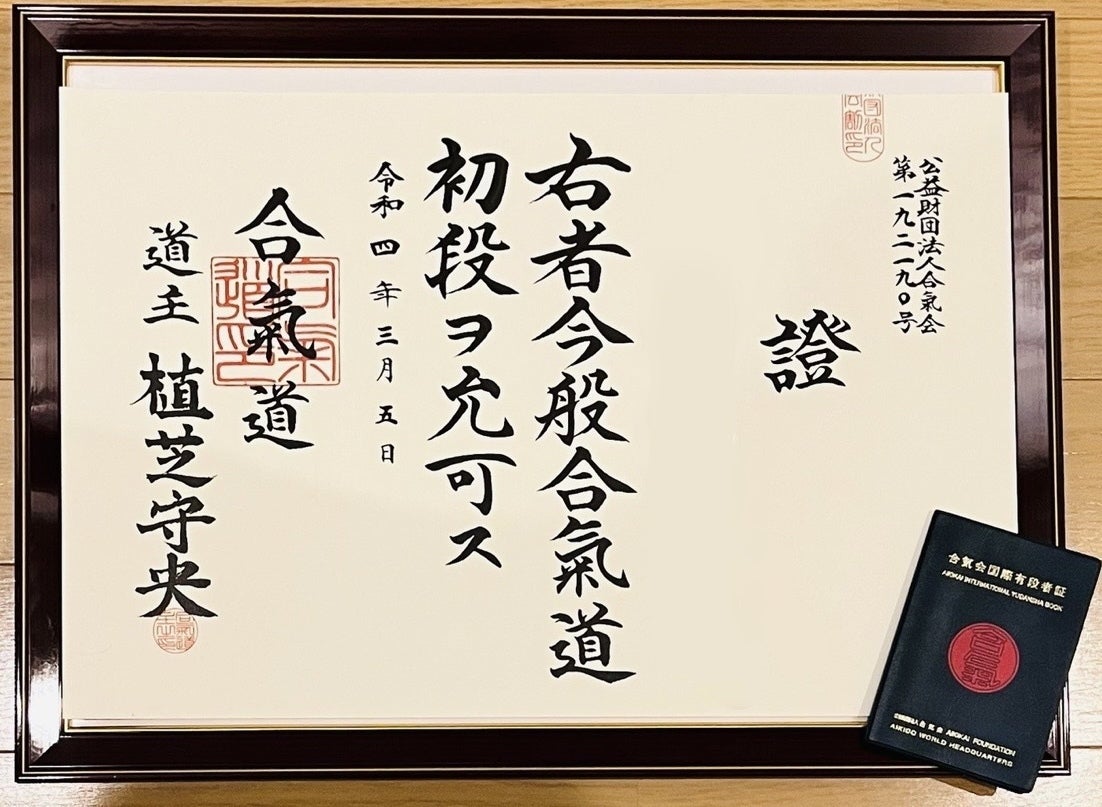 公益財団法人合氣会
第一九二一九〇号
證
右者今般合氣道
初段ヲ允可ス
令和四年三月五日
合氣道
道主 植芝守央
合氣会国際有段者証
AIKIKAI INTERNATIONAL YUDANSHA BOOK
AIKIKAI FOUNDATION
AIKIDO WORLD HEADQUARTERS